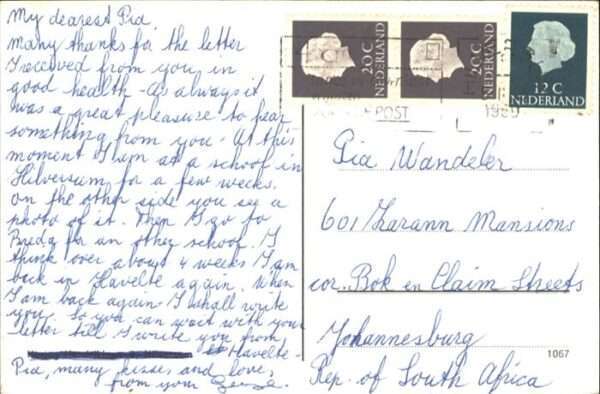 My dearest Pia,
Many thanks for the letter
I received from you in
good health. As always it
was a great pleasure to hear
something from you. At this
moment I am at a school in
Hilversum for a few weeks.
on the other side you see a
photo of it. Then I go to
Breda for an other school. I
think over about 4 weeks I am
back in Havelte again. When
I am back again I shall write
you. So you can wait with your
letter till I write you from
Havelte.
Pia, many kisses and love,
from your
20 C
NEDERLAND
20 C
NEDERLAND
12 C
NEDERLAND
POST
Pia Wandeler
601 Zarann Mansions
cor. Bok en Claim Streets
Johannesburg
Rep. of South Africa
1067